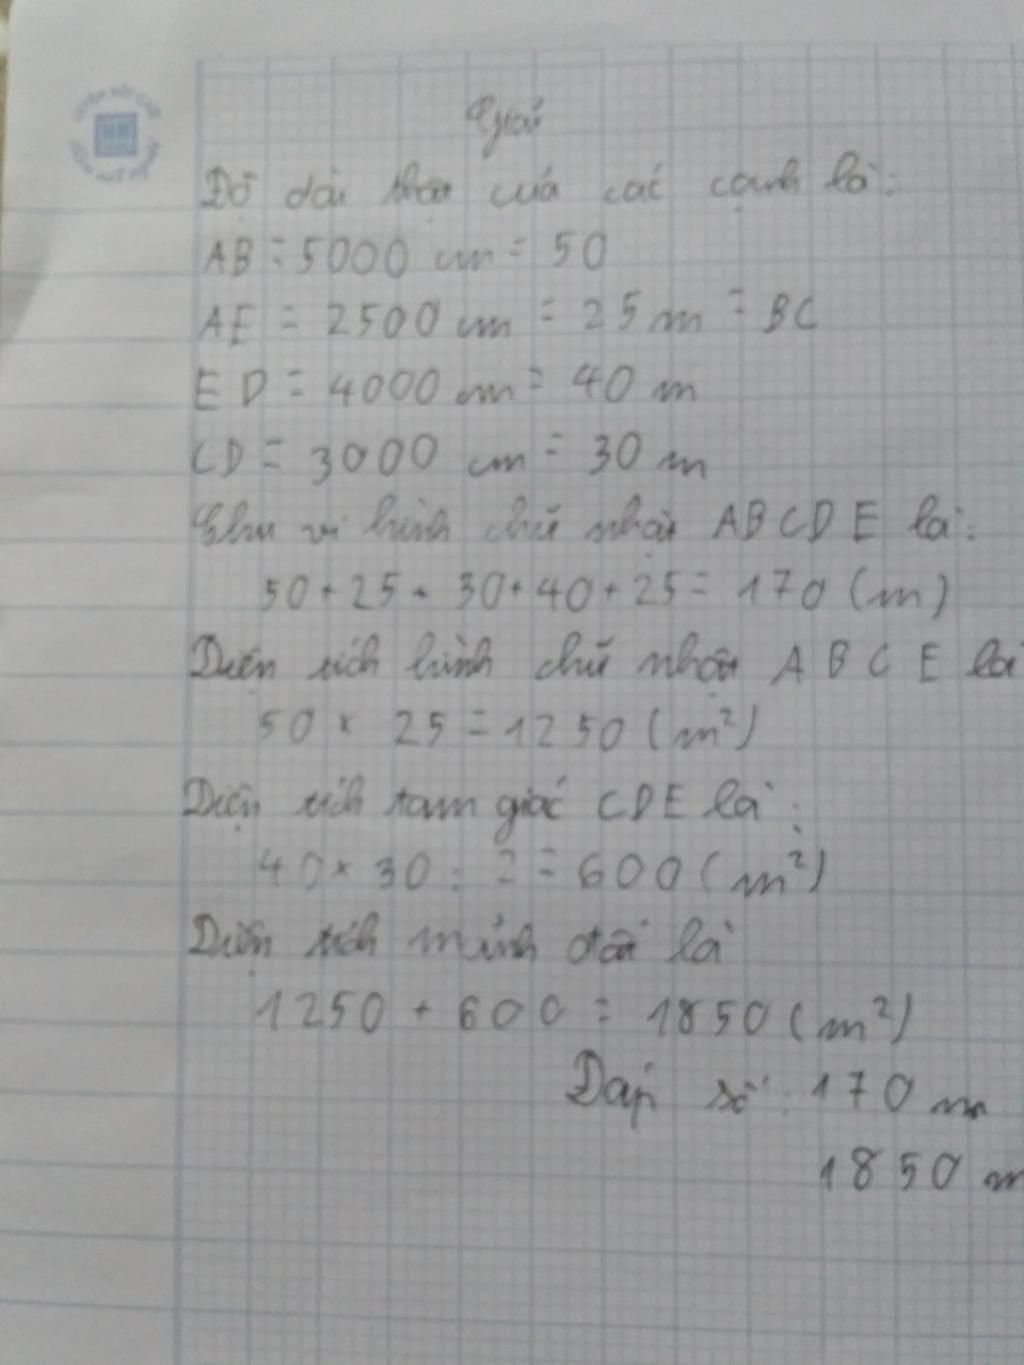 Giải
Độ dài thật của các cạnh là:
AB = 5000 cm = 50
AE = 2500 cm = 25 m = BC
ED = 4000 cm = 40 m
CD = 3000 cm = 30 m
Chu vi hình chữ nhật ABCDE là:
50 + 25 + 30 + 40 + 25 = 170 (m)
Diện tích hình chữ nhật ABCE là
50 × 25 = 1250 (m²)
Diện tích tam giác CDE là:
40 × 30 : 2 = 600 (m²)
Diện tích mảnh đất là
1250 + 600 = 1850 (m²)
Đáp số: 170 m
1850 m